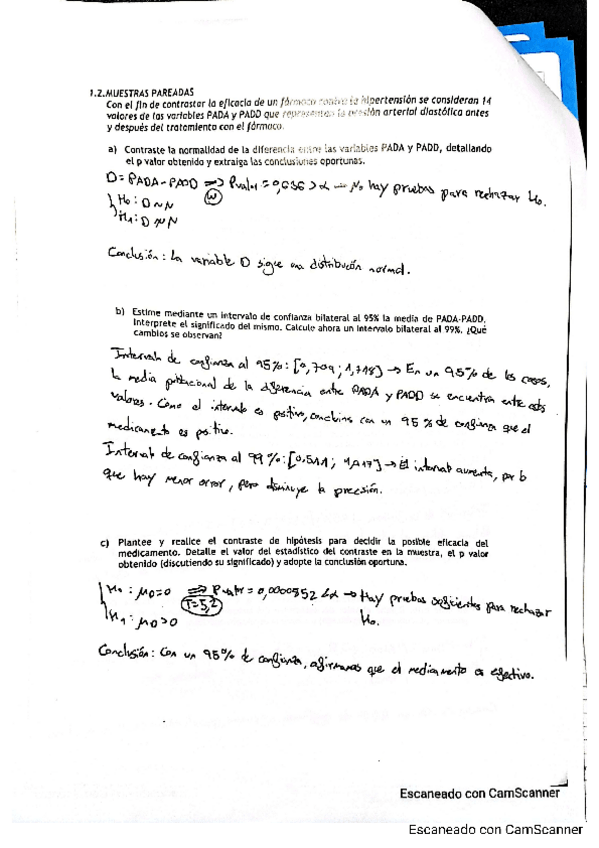 1.2.MUESTRAS PAREADAS
Con el fin de contrastar la eficacia de un fármaco contra la hipertensión se consideran 14
valores de las variables PADA y PADD que representan la presión arterial diastólica antes
y después del tratamiento con el fármaco.
a) Contraste la normalidad de la diferencia entre las variables PADA y PADD, detallando
el p valor obtenido y extraiga las conclusiones oportunas.
D = PADA - PADD => Pvalor = 0,636 > α → No hay pruebas para rechazar Ho.
(W)
Ho: D ~ N
H1: D ≁ N
Conclusión: La variable D sigue una distribución normal.
b) Estime mediante un intervalo de confianza bilateral al 95% la media de PADA-PADD.
Interprete el significado del mismo. Calcule ahora un intervalo bilateral al 99%. ¿Qué
cambios se observan?
Intervalo de confianza al 95%: [0,709 ; 1,718] → En un 95% de los casos,
la media poblacional de la diferencia entre PADA y PADD se encuentra entre estos
valores. Como el intervalo es positivo, concluimos con un 95% de confianza que el
medicamento es positivo.
Intervalo de confianza al 99%: [0,511 ; 1,917] → El intervalo aumenta, por lo
que hay menor error, pero disminuye la precisión.
c) Plantee y realice el contraste de hipótesis para decidir la posible eficacia del
medicamento. Detalle el valor del estadístico del contraste en la muestra, el p valor
obtenido (discutiendo su significado) y adopte la conclusión oportuna.
Ho: μD=0 => Pvalor = 0,0000852 < α → Hay pruebas suficientes para rechazar
T=5,2 Ho.
H1: μD>0
Conclusión: Con un 95% de confianza, afirmamos que el medicamento es efectivo.
Escaneado con CamScanner
Escaneado con CamScanner